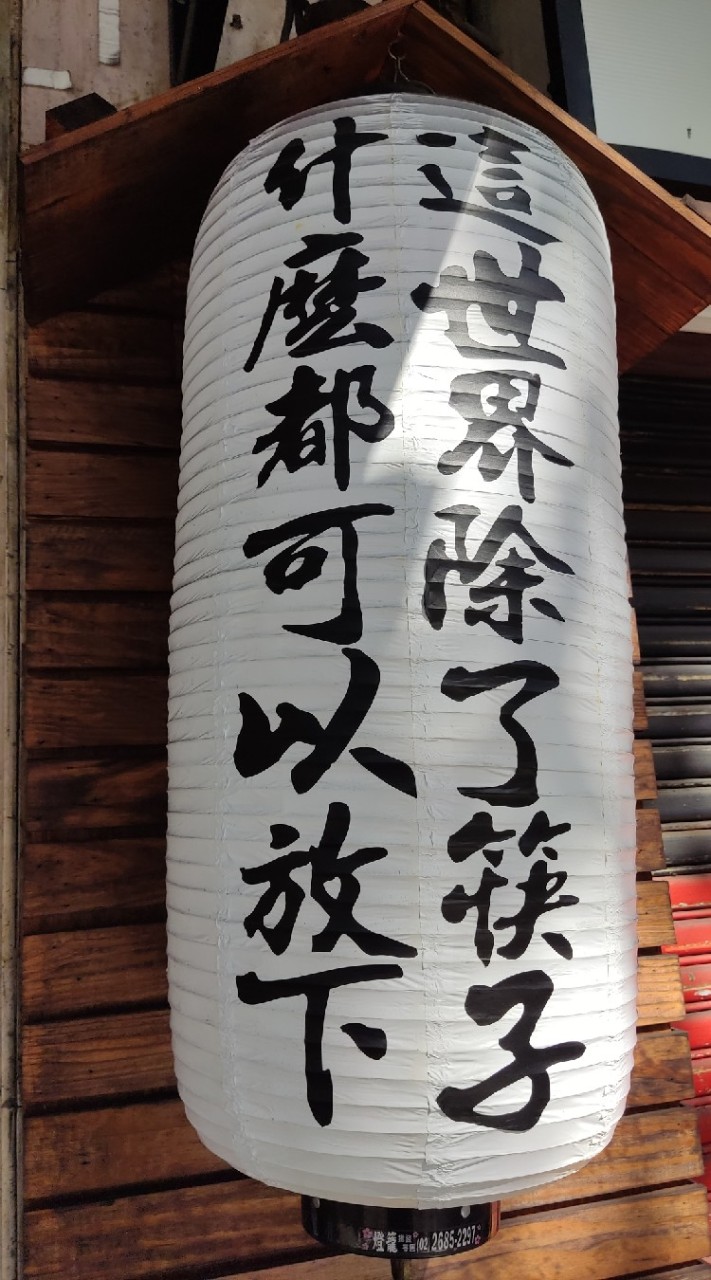 這世界除了筷子
什麼都可以放下
燈籠 (02)2685-2297